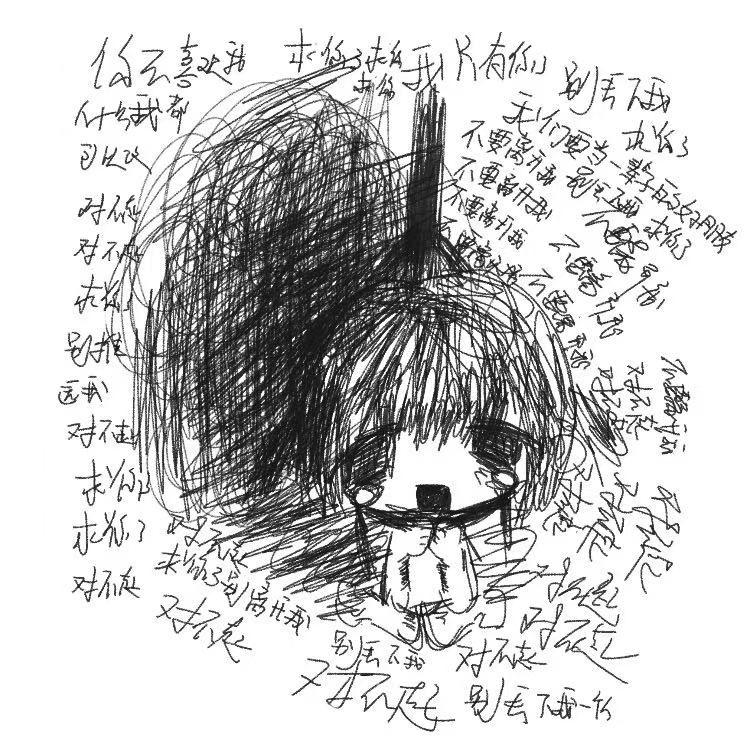 你不喜欢我
什么我都
可以改
对不起
对不起
求你了
别推
远我
对不起
求你了
求你了
对不起
求你了求你
求你
我只有你了
别丢下我
求你了
我们要当一辈子的好朋友
不要离开我
别丢下我
求你了
不要离开我
不要离开我
不要离开我
不要离开我
不要离开我
不要离开我
对不起
对不起
不要离开我
对不起
对不起
对不起
对不起
求你了别离开我
对不起
别丢下我
对不起
对不起
对不起
对不起
别丢下我一个